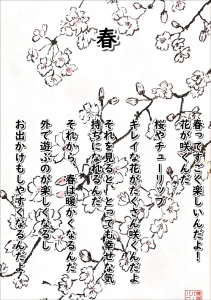 春
春ってすごく楽しいんだよ！
花が咲くんだ
桜やチューリップ
キレイな花がたくさん咲くんだよ
それを見ると、とっても幸せな気
持ちになれるんだ
それから、春は暖かくなるんだ
外で遊ぶのが楽しくなるし
お出かけもしやすくなるんだよ